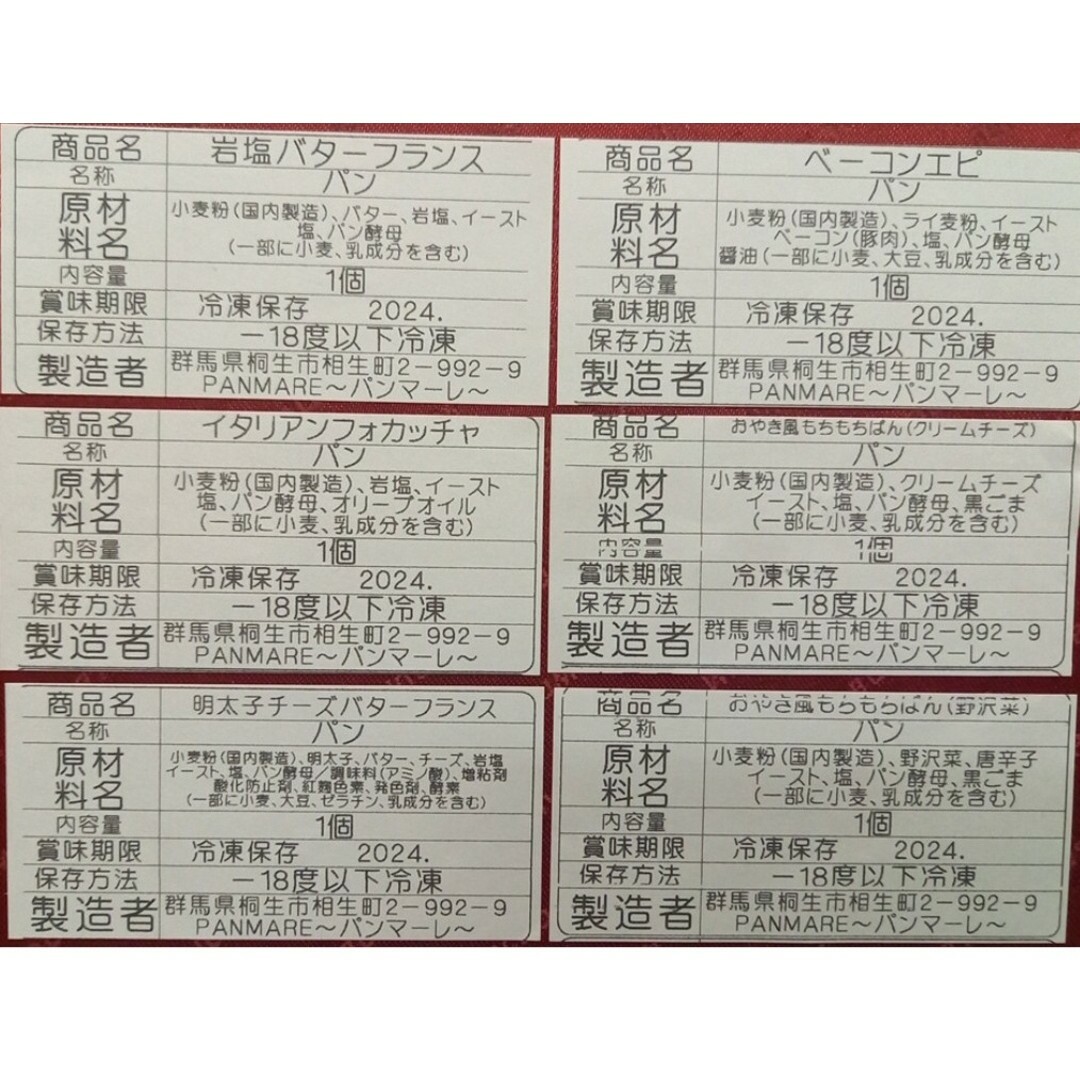 商品名 岩塩バターフランス
名称 パン
原材料名 小麦粉(国内製造)、バター、岩塩、イースト
塩、パン酵母
(一部に小麦、乳成分を含む)
内容量 1個
賞味期限 冷凍保存 2024.
保存方法 −18度以下冷凍
製造者 群馬県桐生市相生町2−992−9
PANMARE〜パンマーレ〜
商品名 ベーコンエピ
名称 パン
原材料名 小麦粉(国内製造)、ライ麦粉、イースト
ベーコン(豚肉)、塩、パン酵母
醤油(一部に小麦、大豆、乳成分を含む)
内容量 1個
賞味期限 冷凍保存 2024.
保存方法 −18度以下冷凍
製造者 群馬県桐生市相生町2−992−9
PANMARE〜パンマーレ〜
商品名 イタリアンフォカッチャ
名称 パン
原材料名 小麦粉(国内製造)、岩塩、イースト
塩、パン酵母、オリーブオイル
(一部に小麦、乳成分を含む)
内容量 1個
賞味期限 冷凍保存 2024.
保存方法 −18度以下冷凍
製造者 群馬県桐生市相生町2−992−9
PANMARE〜パンマーレ〜
商品名 おやき風もちもちぱん(クリームチーズ)
名称 パン
原材料名 小麦粉(国内製造)、クリームチーズ
イースト、塩、パン酵母、黒ごま
(一部に小麦、乳成分を含む)
内容量 1個
賞味期限 冷凍保存 2024.
保存方法 −18度以下冷凍
製造者 群馬県桐生市相生町2−992−9
PANMARE〜パンマーレ〜
商品名 明太子チーズバターフランス
名称 パン
原材料名 小麦粉(国内製造)、明太子、バター、チーズ、岩塩
イースト、塩、パン酵母/調味料(アミノ酸)、増粘剤
酸化防止剤、紅麹色素、発色剤、酵素
(一部に小麦、大豆、ゼラチン、乳成分を含む)
内容量 1個
賞味期限 冷凍保存 2024.
保存方法 −18度以下冷凍
製造者 群馬県桐生市相生町2−992−9
PANMARE〜パンマーレ〜
商品名 おやき風もちもちぱん(野沢菜)
名称 パン
原材料名 小麦粉(国内製造)、野沢菜、唐辛子
イースト、塩、パン酵母、黒ごま
(一部に小麦、乳成分を含む)
内容量 1個
賞味期限 冷凍保存 2024.
保存方法 −18度以下冷凍
製造者 群馬県桐生市相生町2−992−9
PANMARE〜パンマーレ〜